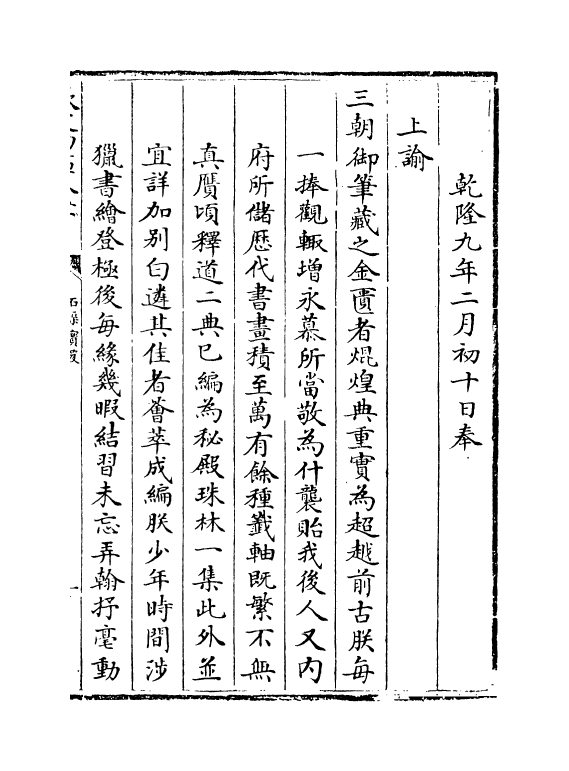 乾隆九年二月初十日奉
上諭
三朝御筆藏之金匱者焜煌典重實為超越前古朕每
一捧觀輙增永慕所當敬為什襲貽我後人又内
府所儲歴代書畫積至萬有餘種籖軸既繁不無
真贋頃釋道二典已編為秘殿珠林一集此外並
宜詳加别白遴其佳者薈萃成編朕少年時間涉
獵書繪登極後每緣幾暇結習未忘弄翰抒毫動
石渠寶笈
一